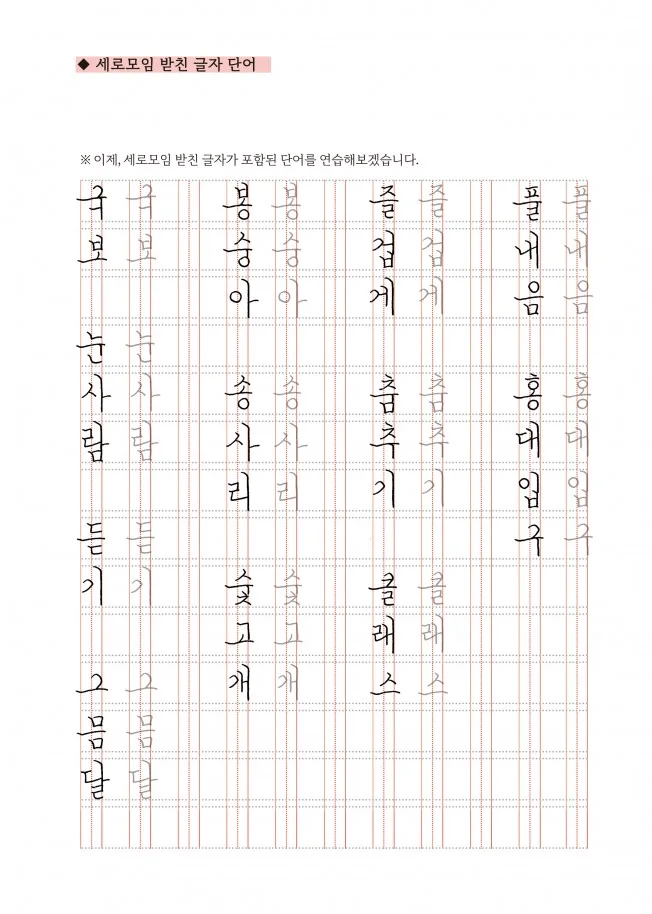 ◆ 세로모임 받친 글자 단어
※ 이제, 세로모임 받친 글자가 포함된 단어를 연습해보겠습니다.
국모
국모
눈사람
눈사람
듣기
듣기
그믐달
그믐달
봉숭아
봉숭아
송사리
송사리
숯고개
숯고개
즐겁게
즐겁게
춤추기
춤추기
클래스
클래스
플내음
플내음
홍대입구
홍대입구